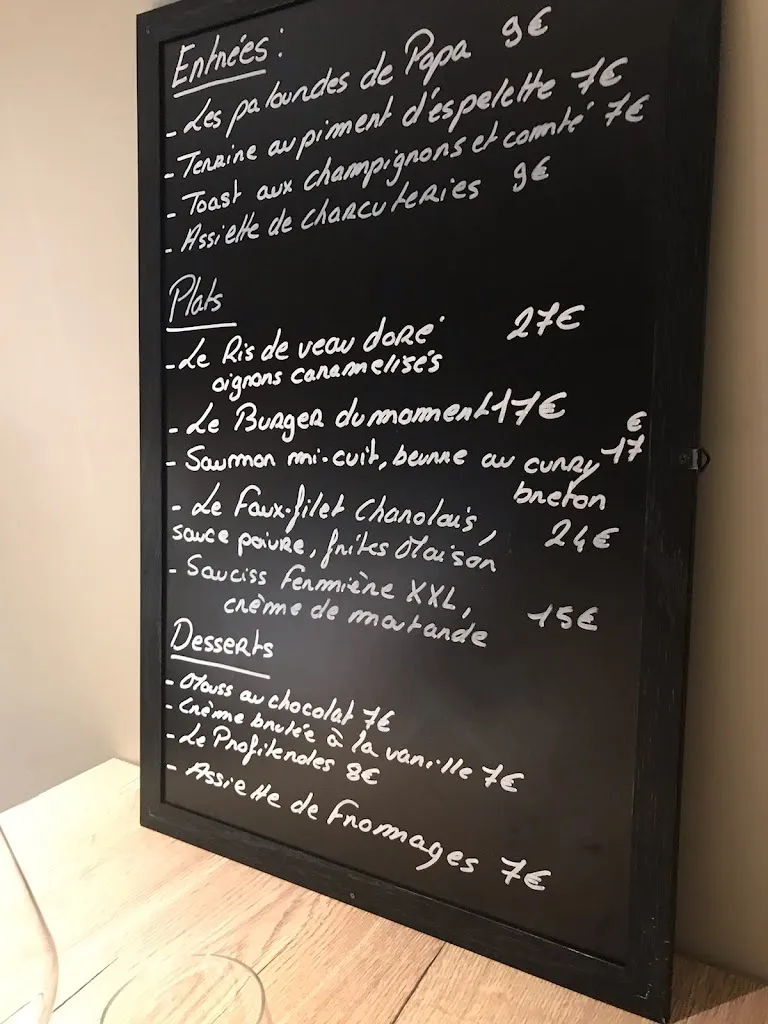 Entrées :
- Les palourdes de Papa 9€
- Terrine au piment d'éspelette 7€
- Toast aux champignons et comté 7€
- Assiette de charcuteries 9€
Plats
- Le Ris de veau doré 27€
oignons caramelisés
- Le Burger du moment 17€
- Saumon mi-cuit, beurre au curry 17€
breton
- Le Faux-filet Charolais,
sauce poivre, frites Maison 24€
- Sauciss Fermière XXL,
crème de moutarde 15€
Desserts
- Mouss au chocolat 7€
- Crème brulée à la vanille 7€
- Le Profiteroles 8€
- Assiette de Fromages 7€